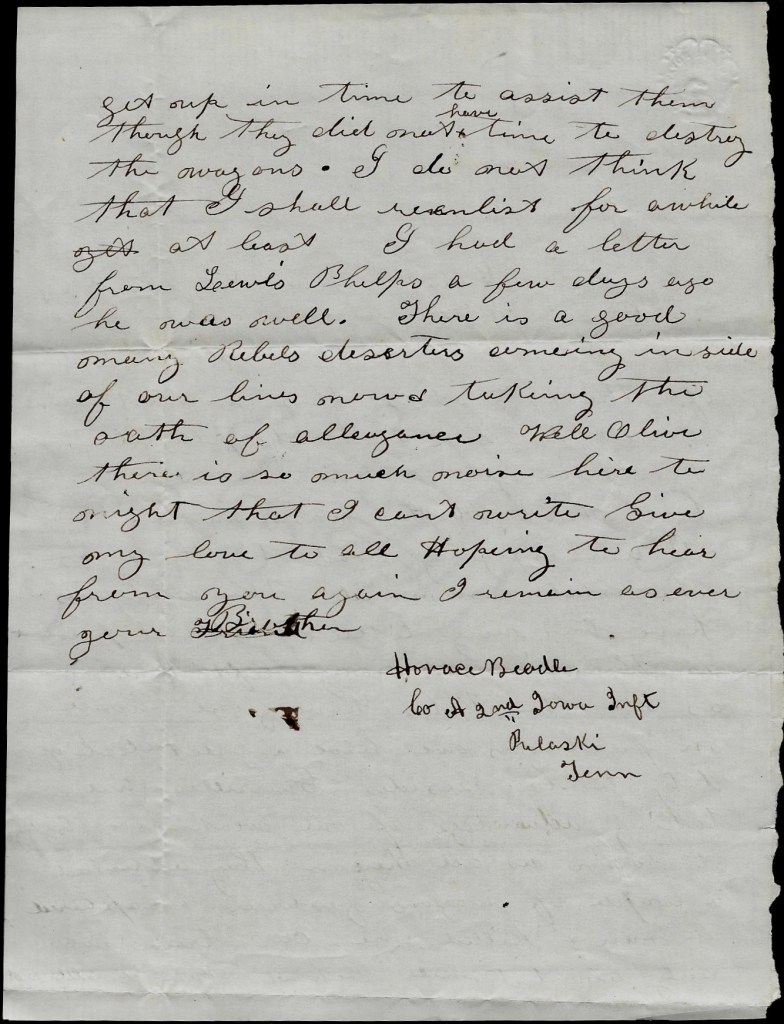 get up in time to assist them
though they did not have time to destroy
the wagons. I do not think
that I shall reenlist for awhile
yet at least I had a letter
from Lewis Phelps a few days ago
he was well. There is a good
many Rebels deserters comeing inside
of our lines now & taking the
oath of allegance Well Olive
there is so much noise here to
night that I can't write Give
my love to all Hopeing to hear
from you again I remain as ever
your Brother
Horace Beadle
Co A 2nd Iowa Inft
Pulaski
Tenn